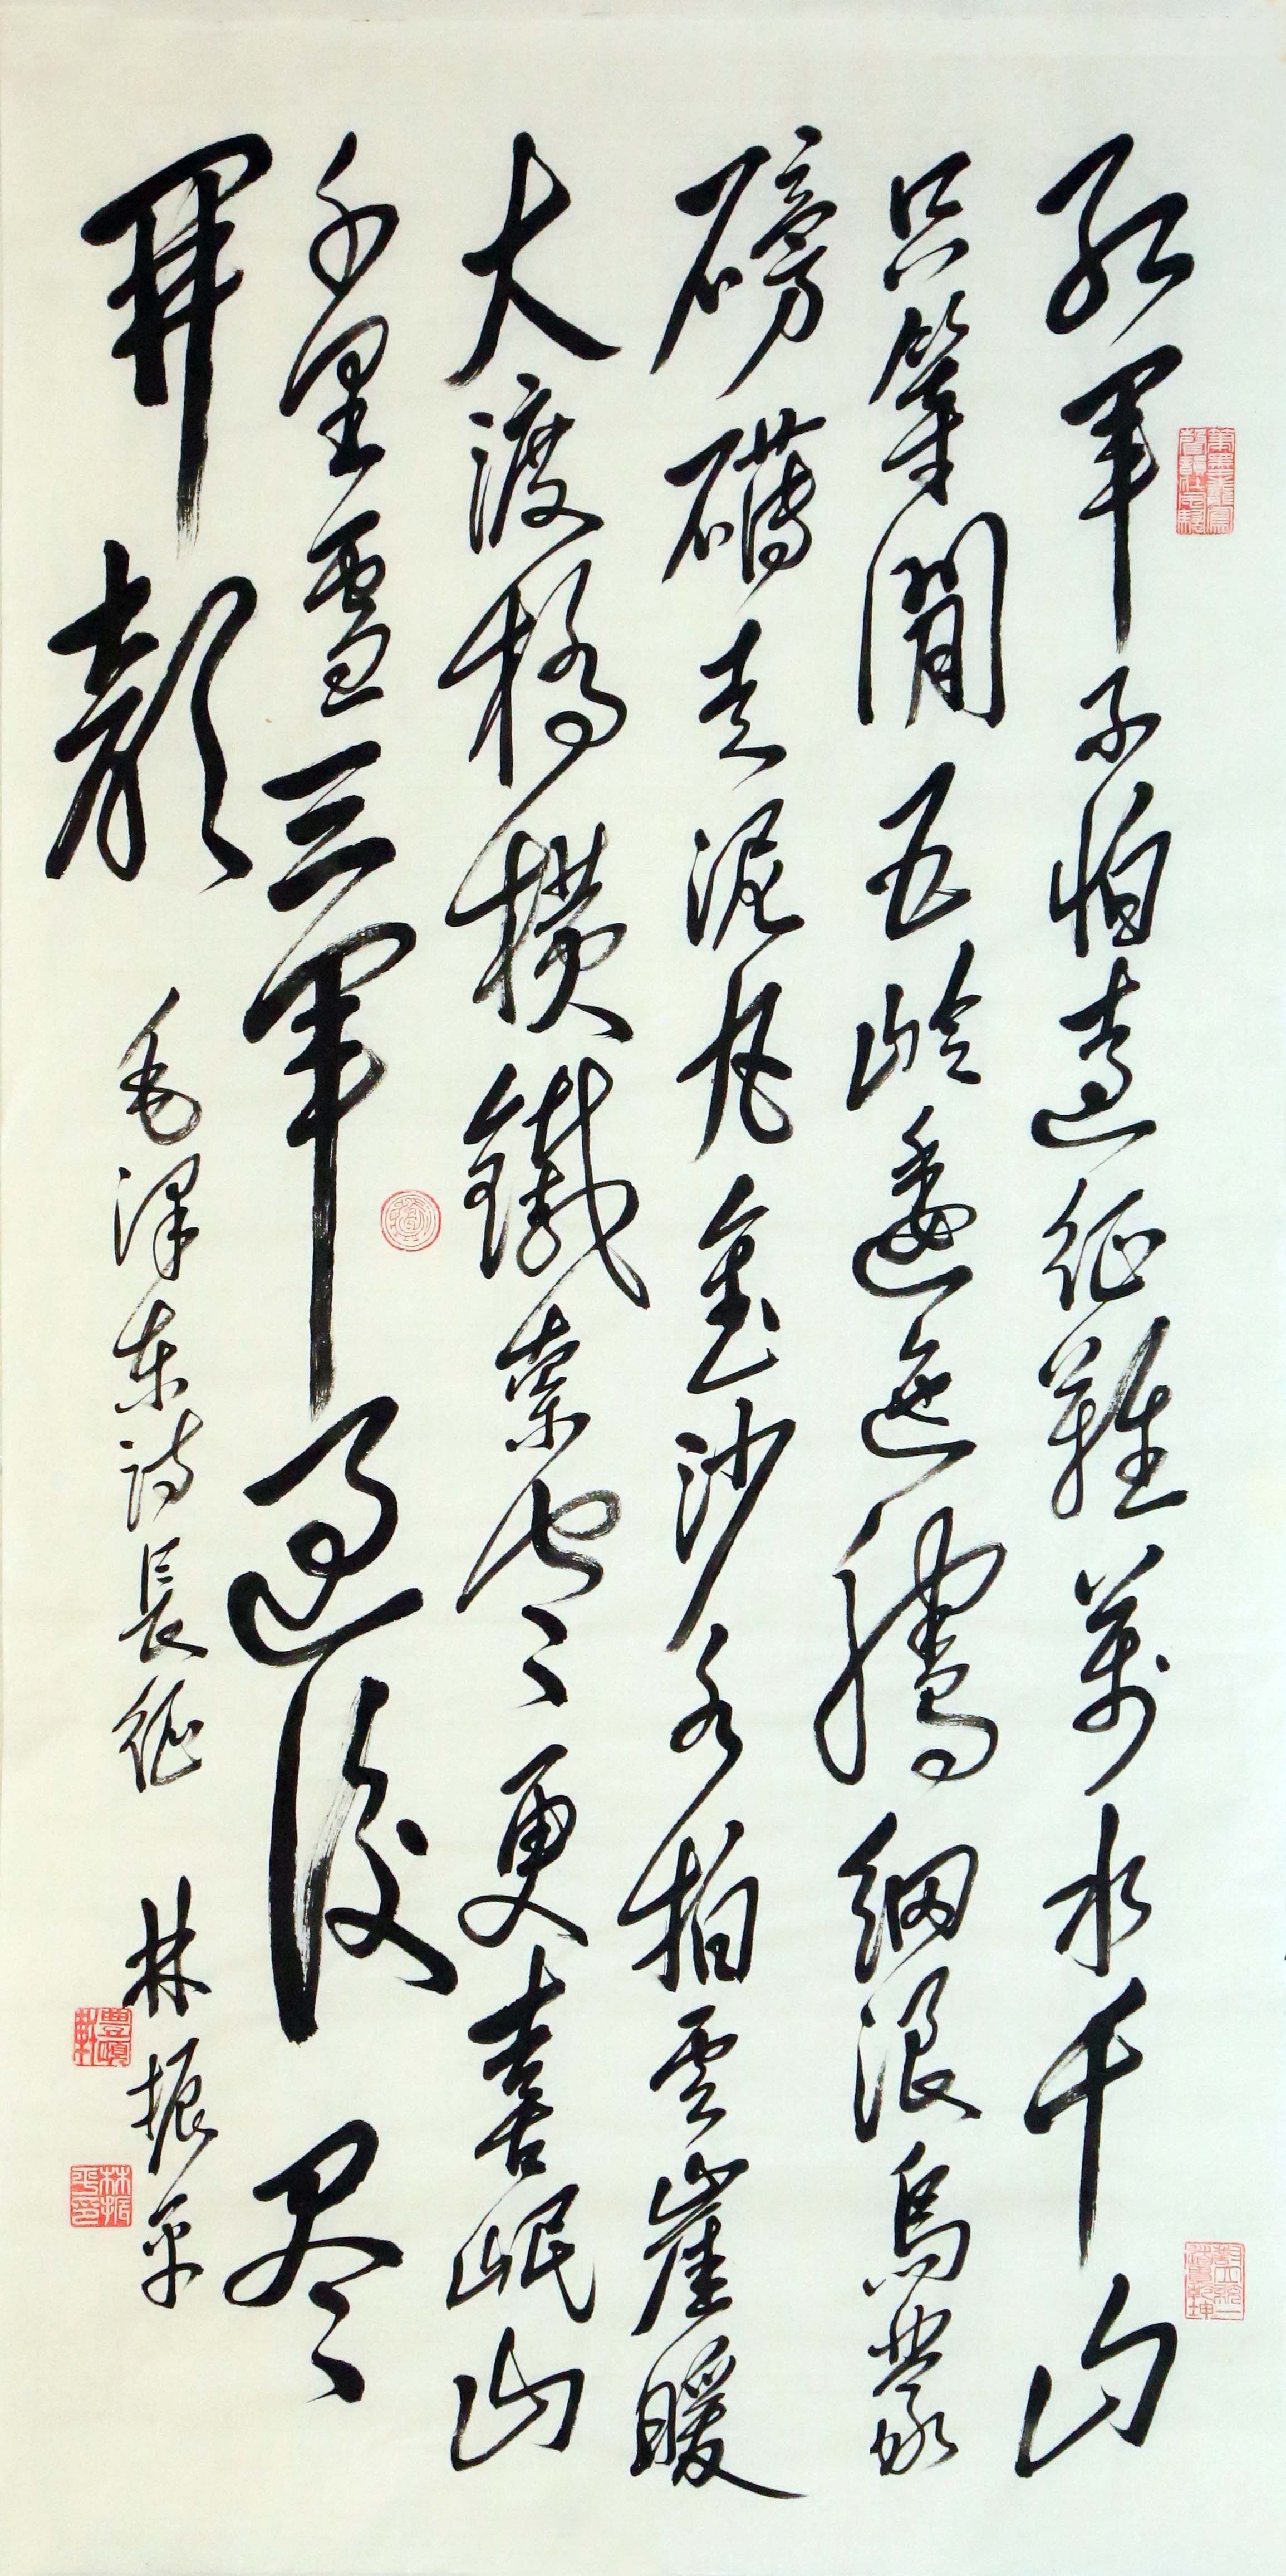 紅軍不怕遠征難萬水千山
只等閒五嶺逶迤騰細浪烏蒙
磅礴走泥丸金沙水拍雲崖暖
大渡橋橫鐵索寒更喜岷山
千里雪三軍過後尽
開顏
毛澤東詩長征 林振平
林振平印